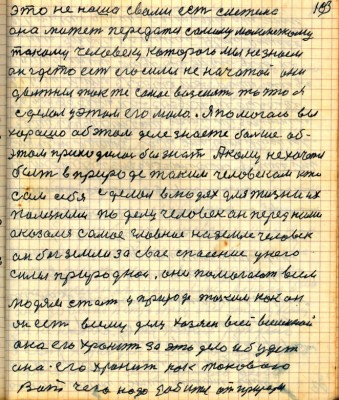 193
это не наша с вами ест система
она может передати самому маленькому
такому человеку которого мы не знаем
он где то ест его силы не начатой они
должны так же самое возсият то что я
сделал у этом его мало. Я помогаю вы
хорошо об этом деле знаете больше об
этом приходилося бы знат Якому не хочется
быт в природе таким человеком кто
сам себя сделал в людях для жизни их
полезным по делу человек он перед ними
оказался самое главное на земле человек
он бог земли за свое спасение у него
силы природной. они помогают всем
людям стат у природе таким как он
он ест всему делу хозяин всей вселенной
она его хранит за это дело и будет
она его хранит как такового
Вот чего надо добится от природы